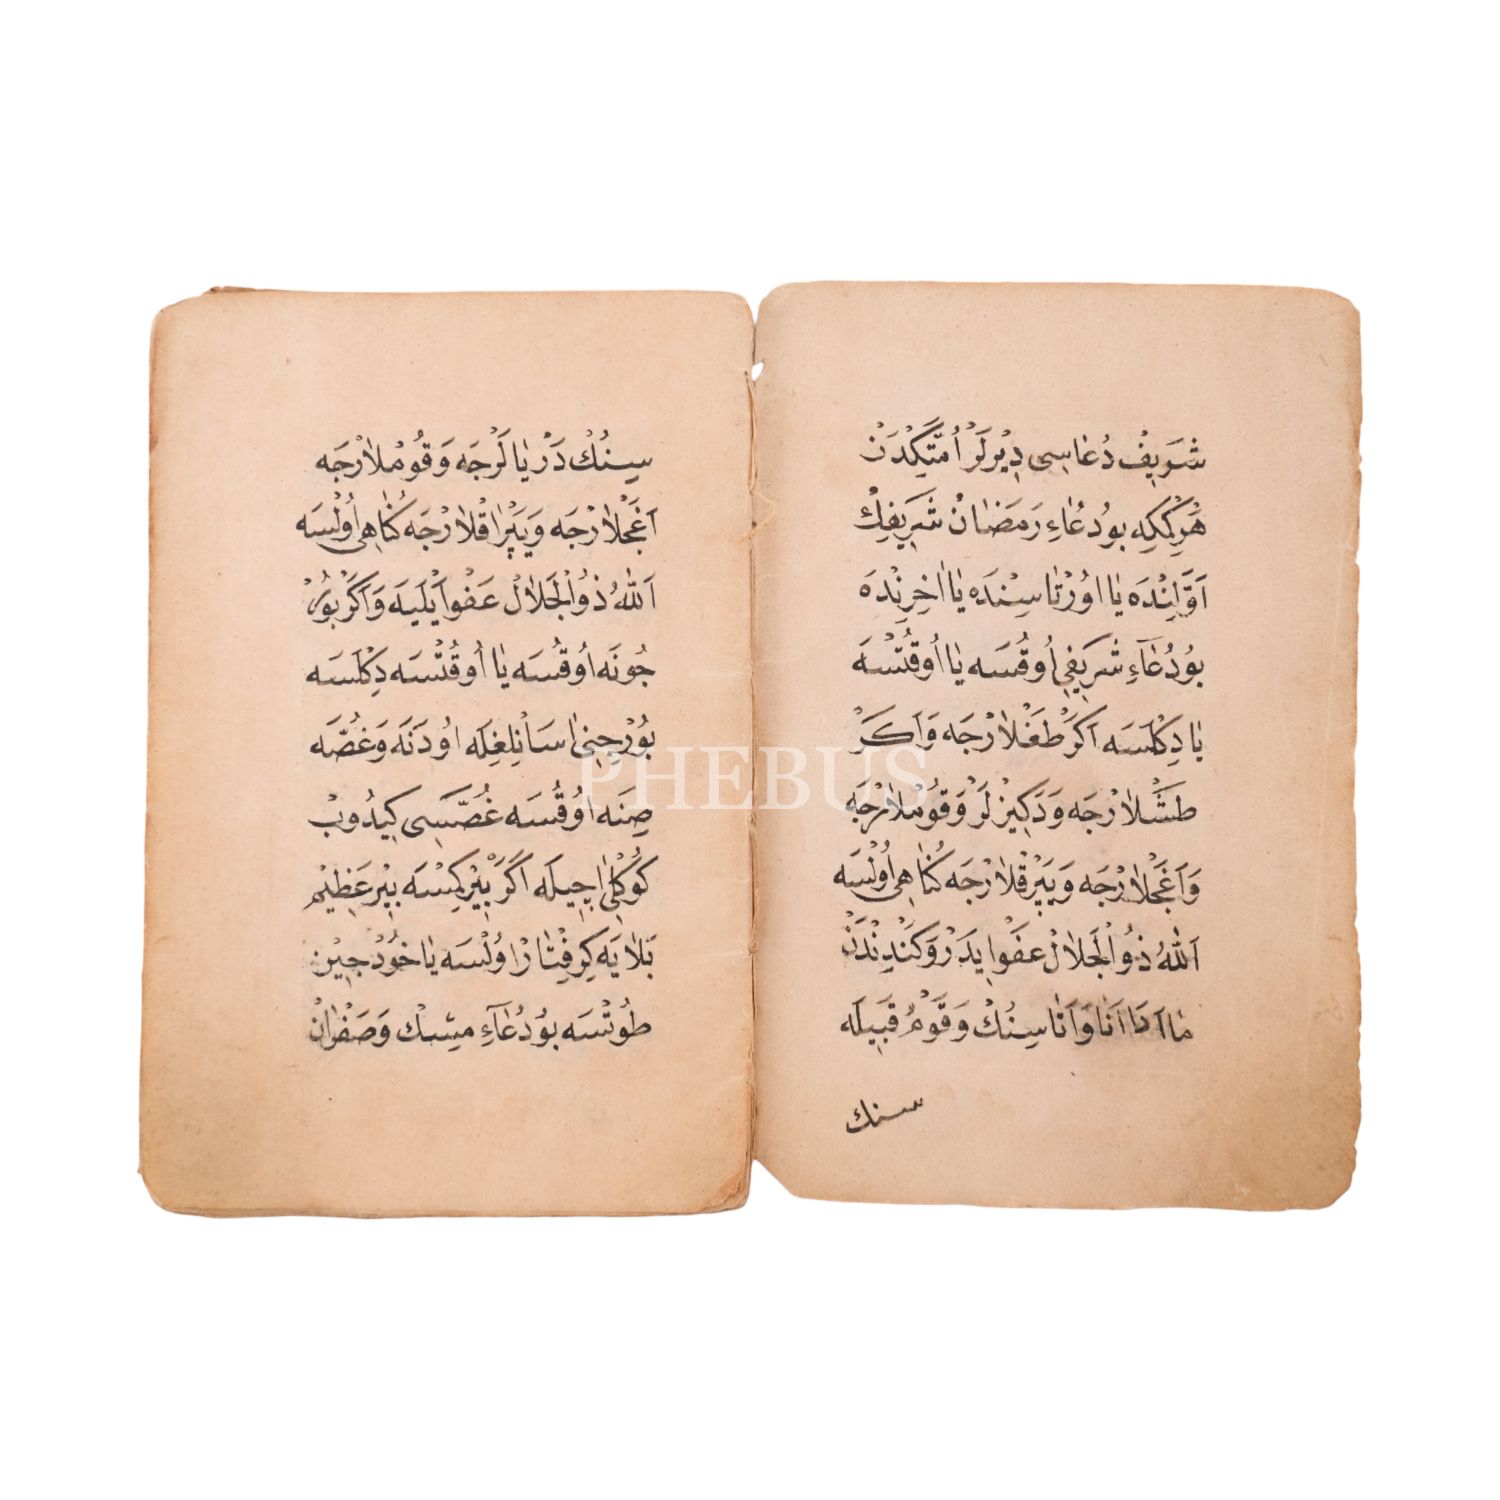 شَرِيفْ دُعَاسِى دِيْرلَرْ اُمَّتِكْدَنْ
هَرْكِمْكِه بودُعَاءِ رَمَضَانْ شَرِيفِكْ
اَوَّلِنْدَه يَا اوُرْتَاسِنْدَه يَا اٰخِرِنْدَه
بوُدُعَآءِ شَرِيفِى اُوقُسَه يَا اُوقُتْسَه
يَا دِكْلَسَه اَكَرْ طَغْلَارْجَه وَاَكَرْ
طَشْلَارْجَه وَدَكِيزْلَرْ وَقُومْلَارْجَه
وَاَغَجْلَارْجَه وَيَپْرَقْلَارْجَه كُنَاهِى اُولْسَه
اَللّٰهُ ذُو الْجَلَالْ عَفْو اِيدَرْ وَكَنْدِنْدَنْ
مَا اَدَا اَنَا وَاَتَاسِنُكْ وَقَوْمُ قَبِيلَه
سنك
سِنُكْ دَرْيَالَرْجَه وَقُومْلَارْجَه
اَغَجْلَارْجَه وَيَپْرَاقْلَارْجَه كُنَاهِى اُولْسَه
اَللّٰهُ ذُو الْجَلَالْ عَفْو اَيْلَيَه وَاَكَرْ بوُرْ
جُونَه اُوقُسَه يَا اُوقُتْسَه دِكْلَسَه
بوُرْجِنِى اسَانْلِغِلَه اوُدَنَه وَغُصَّه
صِنَه اوُقُسَه غُصَّسَى كِيدُوبْ
كوُكْلِى اچِيلَه اَكَرْ بِيْر كِمْسَه بِيْر عَظِيمْ
بَلَايَه كِرِفْتَارْ اوُلْسَه يَا خُودْ جِيْن
طُوتْسَه بوُدُعَآءِ مِسْكْ وَصَفْرَانْ